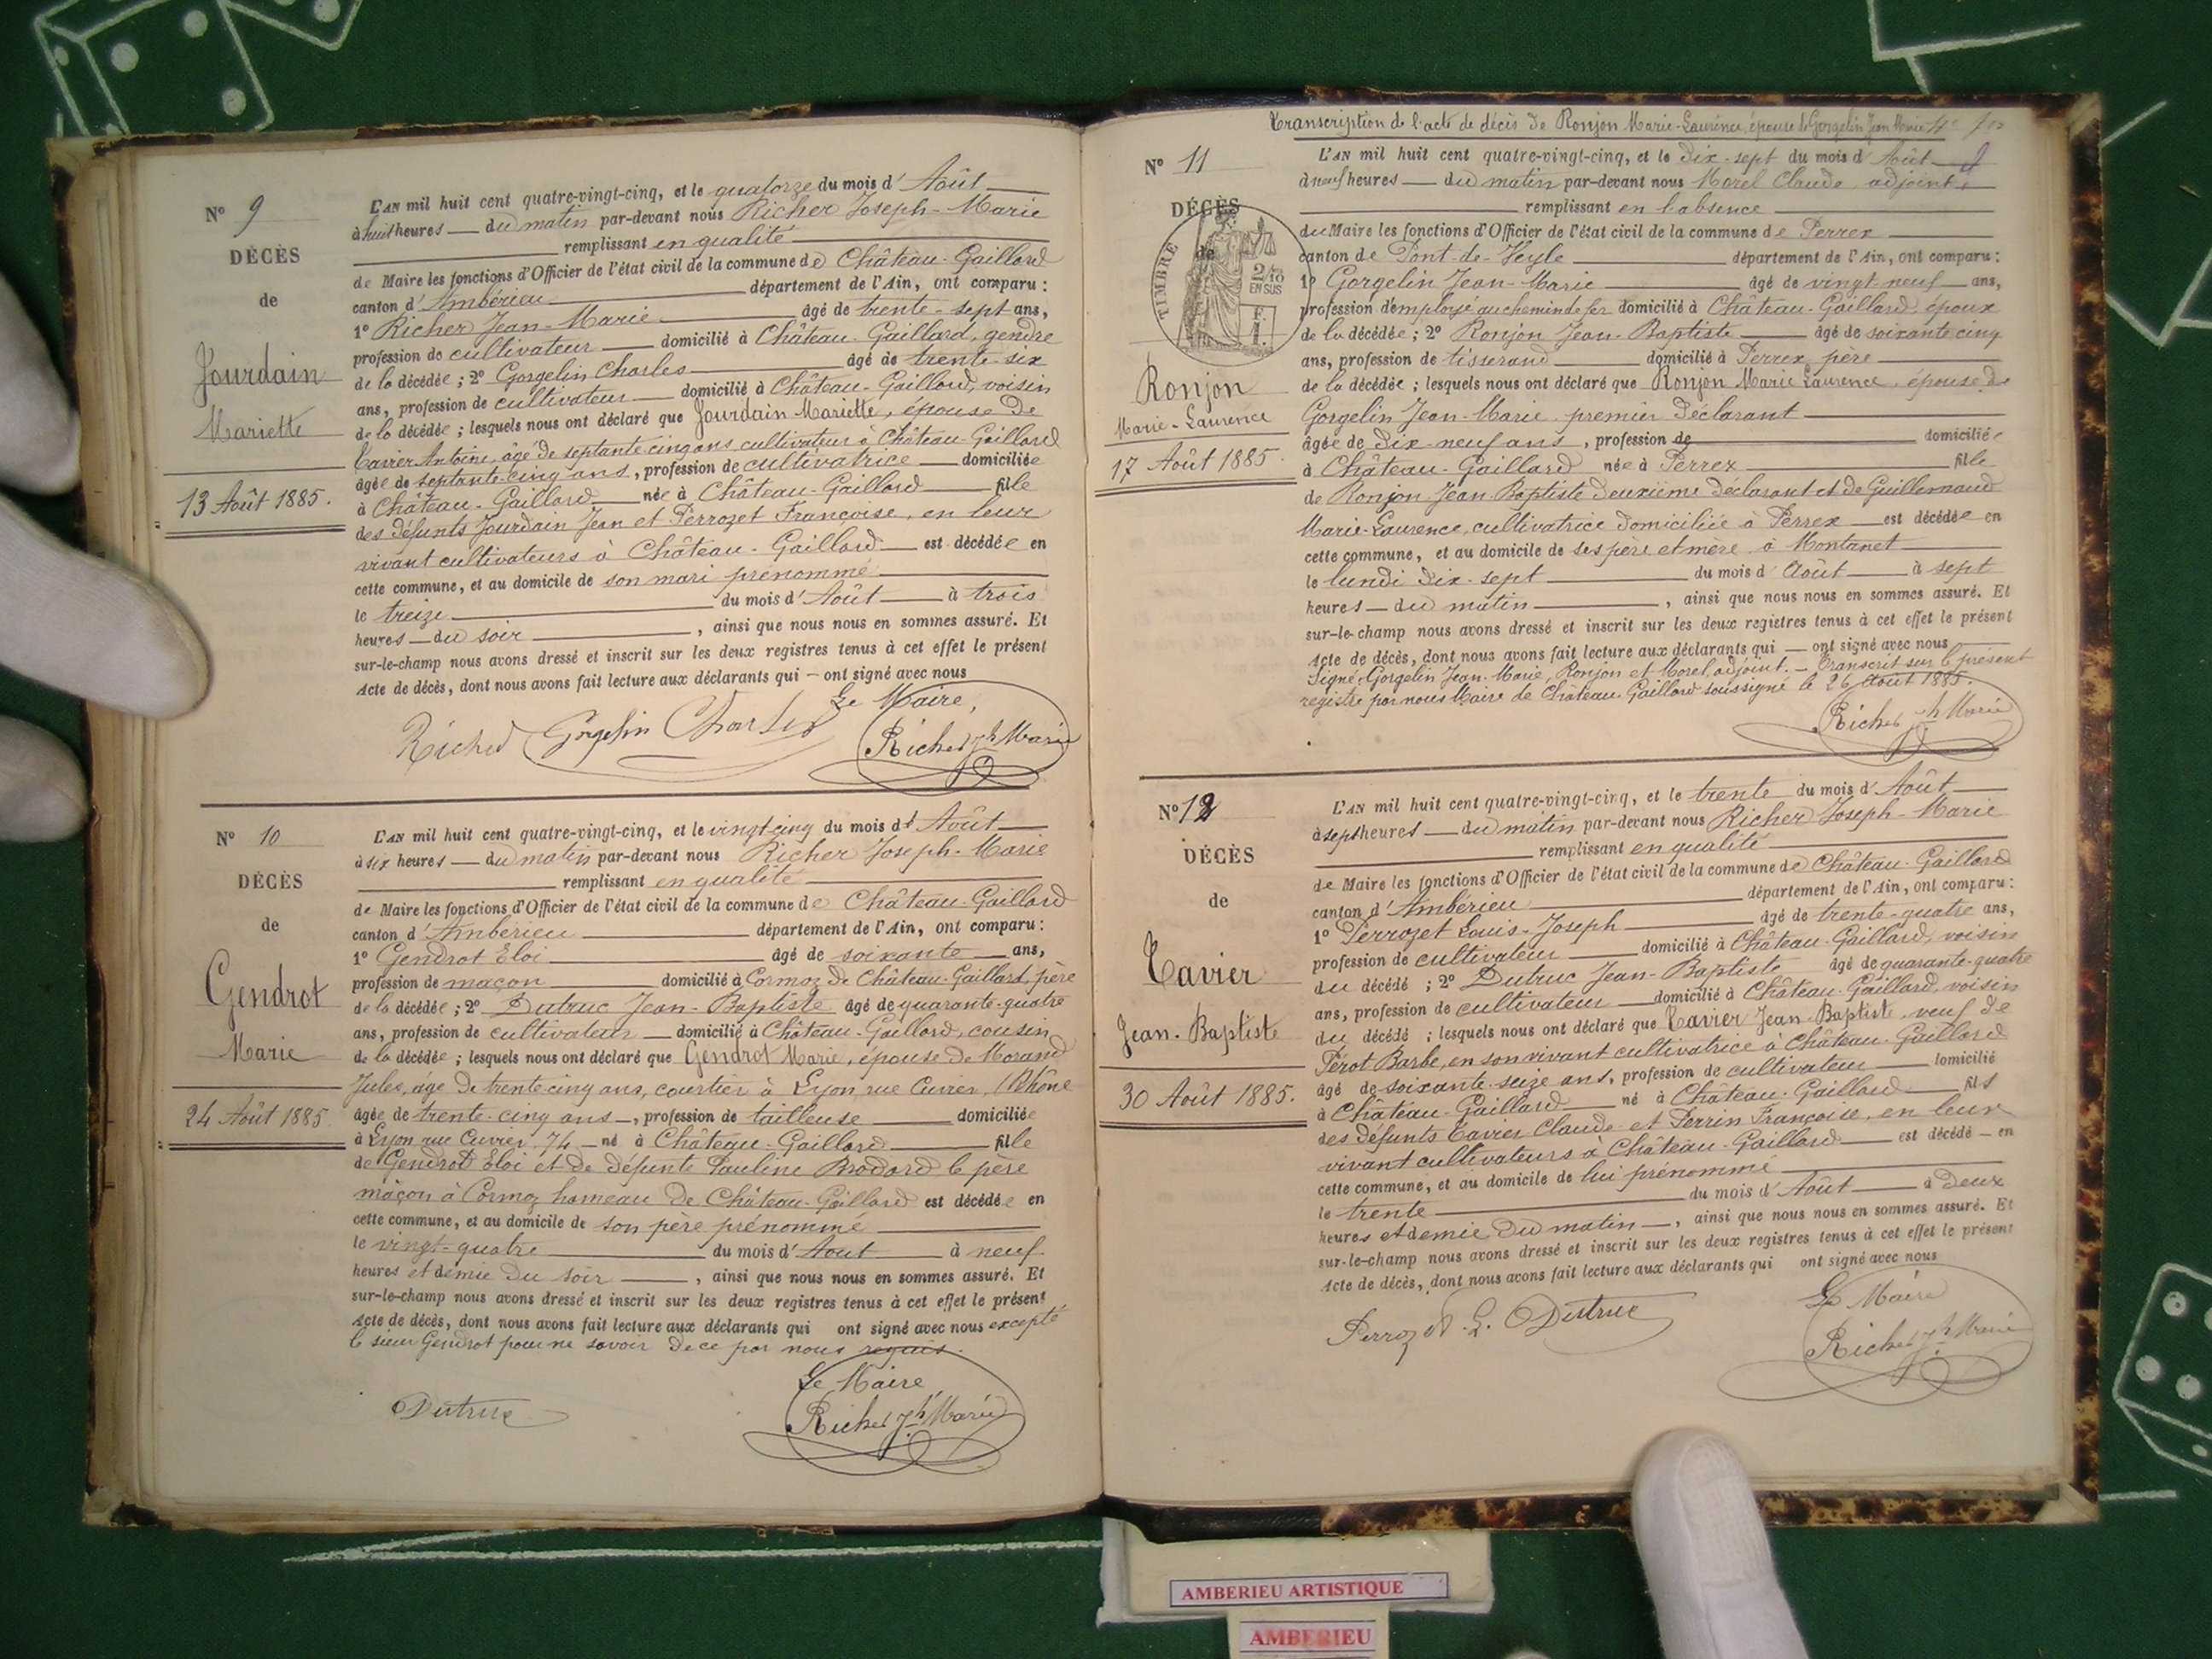 Nº 9
DÉCÈS
de
Jourdain
Mariette
13 Août 1885.
L'AN mil huit cent quatre-vingt-cinq, et le quatorze du mois d'Août
à huit heures du matin par-devant nous Richer Joseph-Marie
remplissant en qualité
de Maire les fonctions d'Officier de l'état civil de la commune de Château-Gaillard
canton d'Ambérieu département de l'Ain, ont comparu :
1º Richer Jean-Marie âgé de trente-sept ans,
profession de cultivateur domicilié à Château-Gaillard, gendre
de la décédée ; 2º Gorgelin Charles âgé de trente-six
ans, profession de cultivateur domicilié à Château-Gaillard, voisin
de la décédée ; lesquels nous ont déclaré que Jourdain Mariette, épouse de
Tavier Antoine, âgé de septante cinq ans cultivateur à Château-Gaillard
âgée de septante-cinq ans, profession de cultivatrice domiciliée
à Château-Gaillard née à Château-Gaillard fille
des défunts Jourdain Jean et Perrozet Françoise, en leur
vivant cultivateurs à Château-Gaillard est décédée en
cette commune, et au domicile de son mari prénommé
le treize du mois d'Août à trois
heures du soir, ainsi que nous nous en sommes assuré. Et
sur-le-champ nous avons dressé et inscrit sur les deux registres tenus à cet effet le présent
Acte de décès, dont nous avons fait lecture aux déclarants qui ont signé avec nous
Le Maire,
Richer Gorgelin Charles Richer Jh Marie
Nº 10
DÉCÈS
de
Gendrot
Marie
24 Août 1885.
L'AN mil huit cent quatre-vingt-cinq, et le vingt cinq du mois d'Août
à six heures du matin par-devant nous Richer Joseph-Marie
remplissant en qualité
de Maire les fonctions d'Officier de l'état civil de la commune de Château-Gaillard
canton d'Ambérieu département de l'Ain, ont comparu :
1º Gendrot Eloi âgé de soixante ans,
profession de maçon domicilié à Cormoz de Château-Gaillard, père
de la décédée ; 2º Dutruc Jean-Baptiste âgé de quarante-quatre
ans, profession de cultivateur domicilié à Château-Gaillard, cousin
de la décédée ; lesquels nous ont déclaré que Gendrot Marie, épouse de Morand
Jules, âgé de trente cinq ans, courtier à Lyon rue Cuvier, (Rhône
âgée de trente-cinq ans, profession de tailleuse domiciliée
à Lyon rue Cuvier 74 né à Château-Gaillard fille
de Gendrot Eloi et de défunte Pauline Brodard le père
mâçon à Cormoz hameau de Château-Gaillard est décédée en
cette commune, et au domicile de son père prénommé
le vingt-quatre du mois d'Aout à neuf
heures et demie du soir, ainsi que nous nous en sommes assuré. Et
sur-le-champ nous avons dressé et inscrit sur les deux registres tenus à cet effet le présent
Acte de décès, dont nous avons fait lecture aux déclarants qui ont signé avec nous excepté
le sieur Gendrot pour ne savoir de ce par nous requis.
Le Maire
Dutruc Richer Jh Marie
Transcription de l'acte de décès de Ronjon Marie-Laurence, épouse de Gorgelin Jean Marie
Nº 11
DÉCÈS
de
TIMBRE
2/10
EN SUS
Ronjon
Marie-Laurence
17 Août 1885.
L'AN mil huit cent quatre-vingt-cinq, et le Dix-sept du mois d'Août
à neuf heures du matin par-devant nous Morel Claude adjoint,
remplissant en l'absence
du Maire les fonctions d'Officier de l'état civil de la commune de Perrex
canton de Pont-de-Veyle département de l'Ain, ont comparu :
1º Gorgelin Jean-Marie âgé de vingt-neuf ans,
profession d'employé au chemin de fer domicilié à Château-Gaillard, époux
de la décédée ; 2º Ronjon Jean-Baptiste âgé de soixante cinq
ans, profession de tisserand domicilié à Perrex, père
de la décédée ; lesquels nous ont déclaré que Ronjon Marie Laurence, épouse de
Gorgelin Jean-Marie premier déclarant
âgée de Dix-neuf ans, profession de domiciliée
à Château-Gaillard née à Perrex fille
de Ronjon Jean-Baptiste deuxième déclarant et de Guillermaud
Marie-Laurence, cultivatrice domiciliée à Perrex est décédée en
cette commune, et au domicile de ses père et mère à Montanet
le lundi dix-sept du mois d'Août à sept
heures du matin, ainsi que nous nous en sommes assuré. Et
sur-le-champ nous avons dressé et inscrit sur les deux registres tenus à cet effet le présent
Acte de décès, dont nous avons fait lecture aux déclarants qui ont signé avec nous
Signé, Gorgelin Jean-Marie, Ronjon et Morel, adjoint. - Transcrit sur le présent
registre par nous Maire de Château-Gaillard soussigné le 26 Août 1885.
Richer Jh Marie
Nº 12
DÉCÈS
de
Tavier
Jean-Baptiste
30 Août 1885.
L'AN mil huit cent quatre-vingt-cinq, et le trente du mois d'Août
à sept heures du matin par-devant nous Richer Joseph-Marie
remplissant en qualité
de Maire les fonctions d'Officier de l'état civil de la commune de Château-Gaillard
canton d'Ambérieu département de l'Ain, ont comparu :
1º Perrozet Louis-Joseph âgé de trente-quatre ans,
profession de cultivateur domicilié à Château-Gaillard, voisin
du décédé ; 2º Dutruc Jean-Baptiste âgé de quarante-quatre
ans, profession de cultivateur domicilié à Château-Gaillard, voisin
du décédé ; lesquels nous ont déclaré que Tavier Jean-Baptiste, veuf de
Pérot Barbe, en son vivant cultivatrice à Château-Gaillard
âgé de soixante-seize ans, profession de cultivateur domicilié
à Château-Gaillard né à Château-Gaillard fils
des défunts Tavier Claude et Perrin Françoise, en leur
vivant cultivateurs à Château-Gaillard est décédé en
cette commune, et au domicile de lui prénommé
le trente du mois d'Août à deux
heures et demie du matin, ainsi que nous nous en sommes assuré. Et
sur-le-champ nous avons dressé et inscrit sur les deux registres tenus à cet effet le présent
Acte de décès, dont nous avons fait lecture aux déclarants qui ont signé avec nous
Le Maire
Perrozet L. Dutruc Richer Jh Marie
AMBERIEU ARTISTIQUE
AMBERIEU